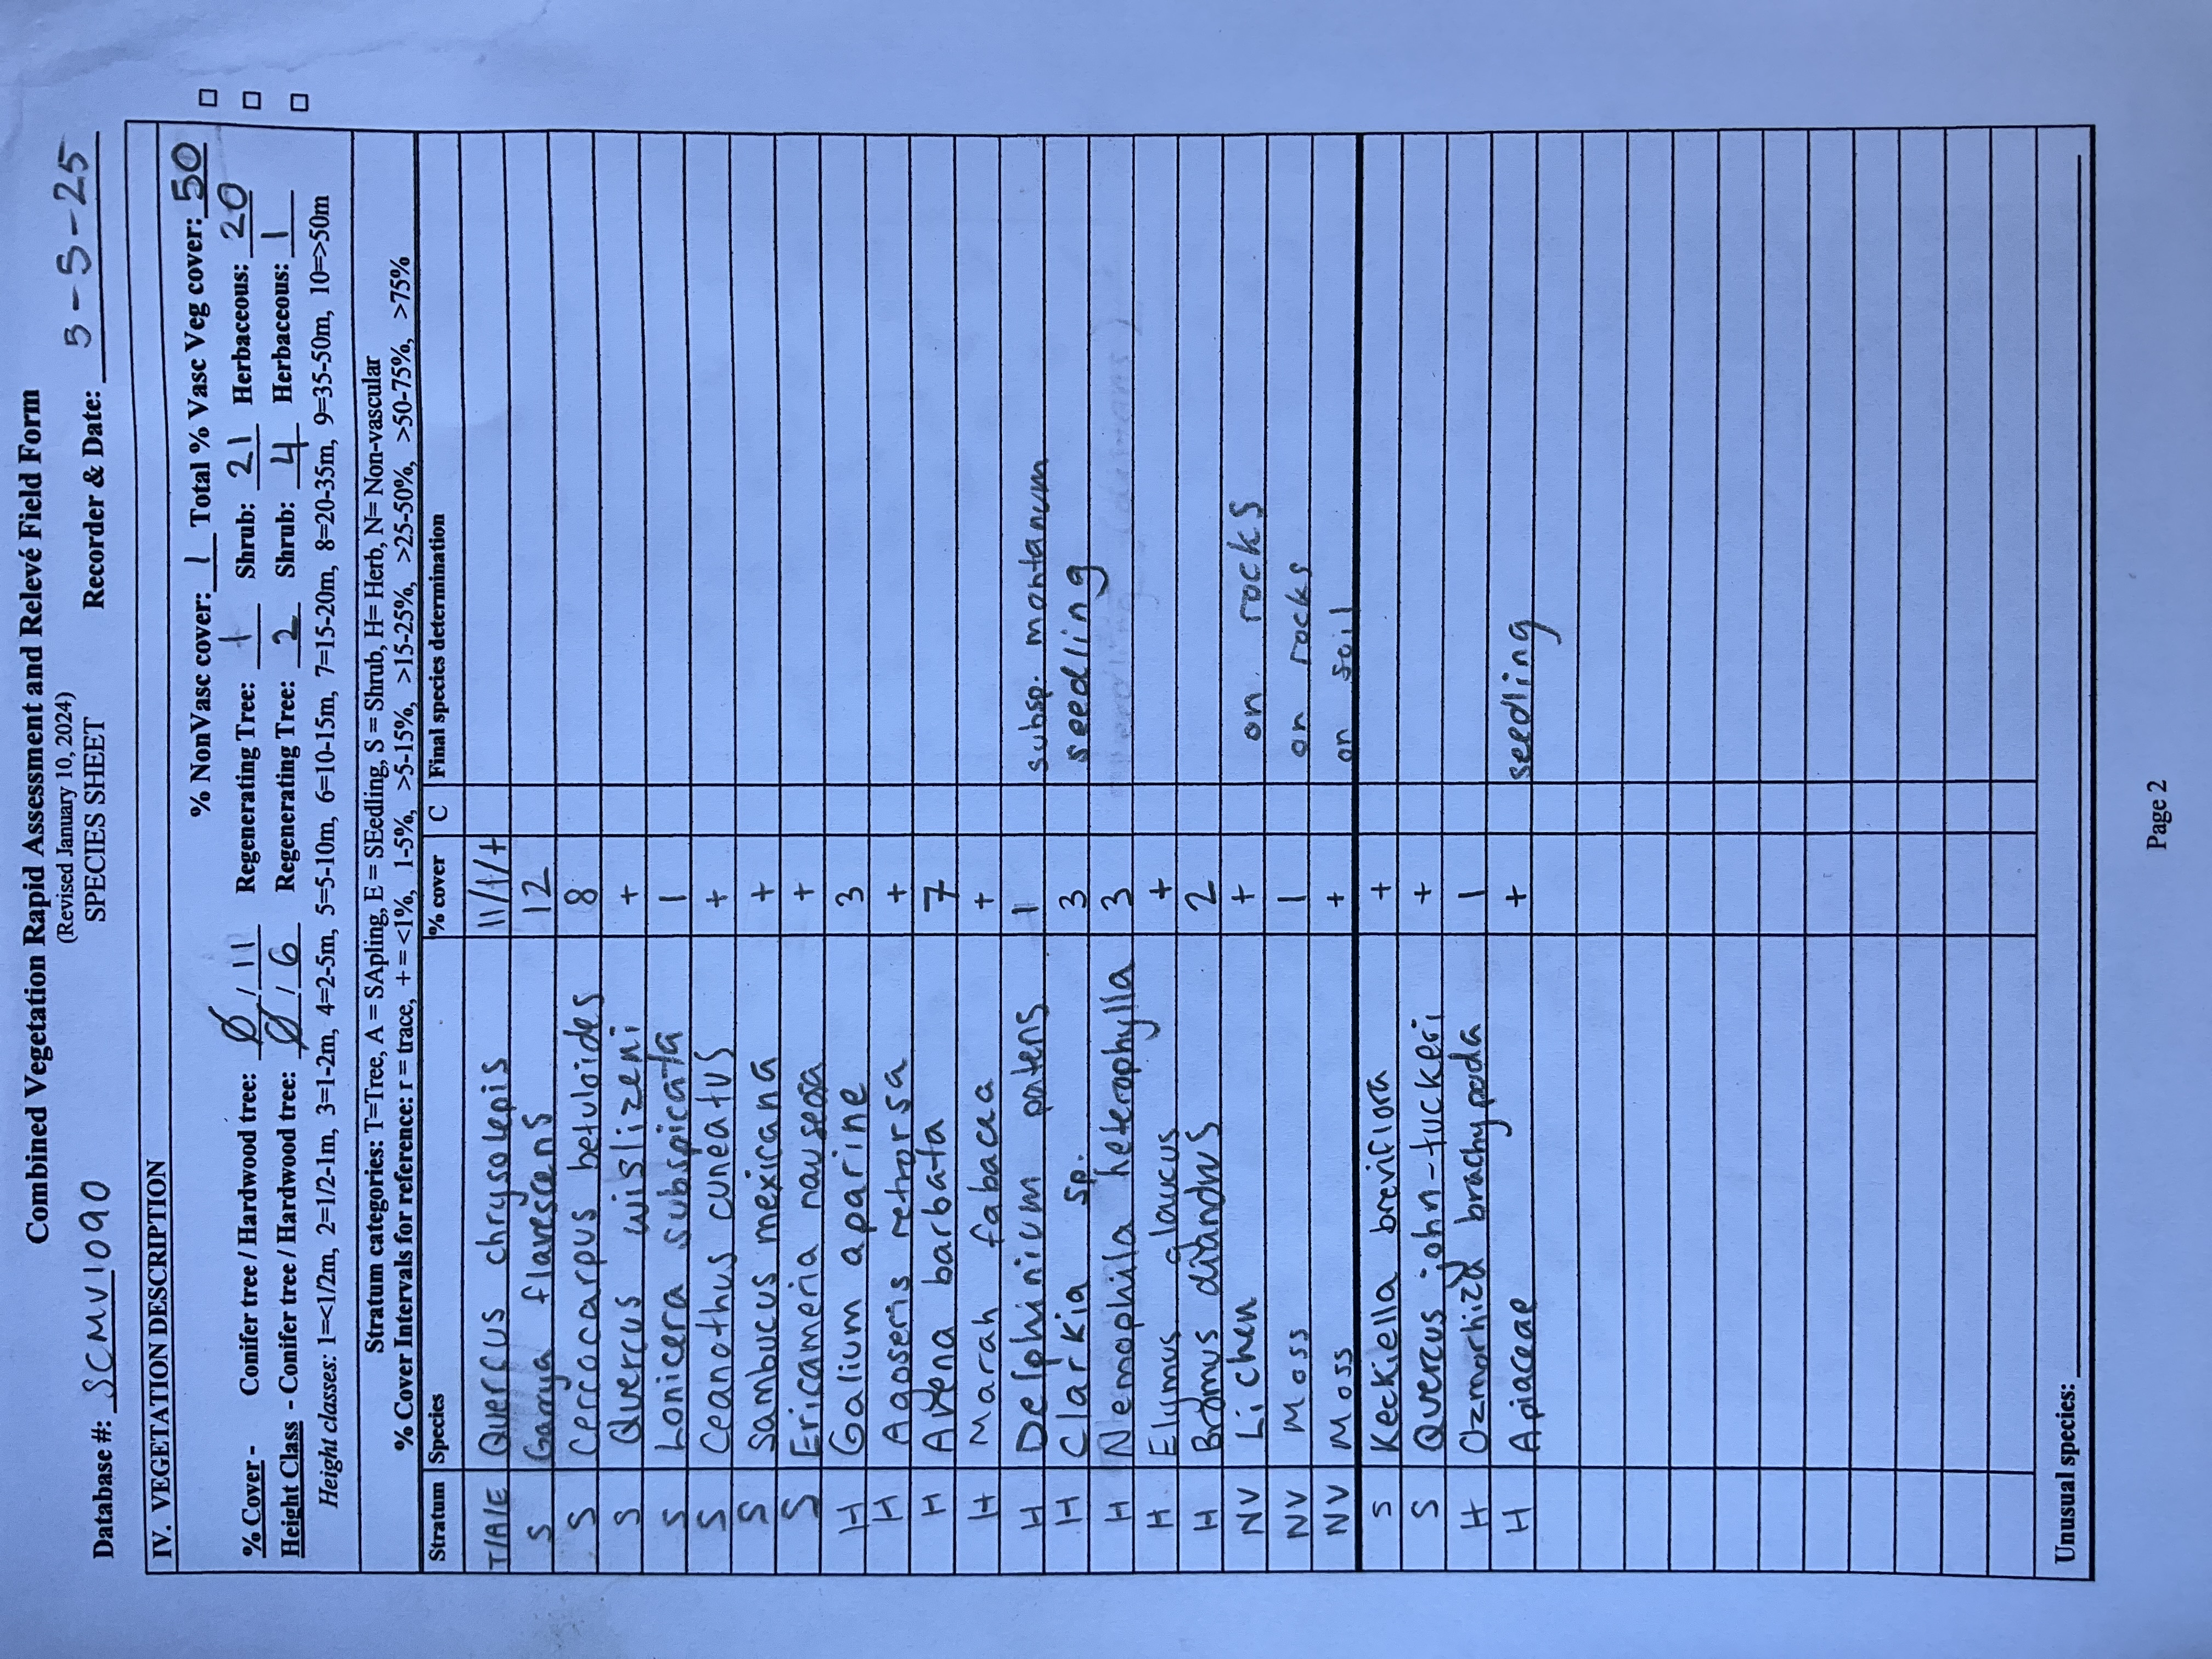 Combined Vegetation Rapid Assessment and Relevé Field Form
(Revised January 10, 2024)
SPECIES SHEET
Database #: SCMV1090 Recorder & Date: 5-5-25
IV. VEGETATION DESCRIPTION
% NonVasc cover: 1 Total % Vasc Veg cover: 50
% Cover - Conifer tree / Hardwood tree: Ø / 11 Regenerating Tree: 1 Shrub: 21 Herbaceous: 20
Height Class - Conifer tree / Hardwood tree: Ø / 6 Regenerating Tree: 2 Shrub: 4 Herbaceous: 1
Height classes: 1=<1/2m, 2=1/2-1m, 3=1-2m, 4=2-5m, 5=5-10m, 6=10-15m, 7=15-20m, 8=20-35m, 9=35-50m, 10=>50m
Stratum categories: T=Tree, A = SApling, E = SEedling, S = Shrub, H= Herb, N= Non-vascular
% Cover Intervals for reference: r = trace, + = <1%, 1-5%, >5-15%, >15-25%, >25-50%, >50-75%, >75%
Stratum Species % cover C Final species determination
T/A/E Quercus chrysolepis 11/1/+
S Garrya flavescens 12
S Cercocarpus betuloides 8
S Quercus wislizeni +
S Lonicera subspicata 1
S Ceanothus cuneatus +
S Sambucus mexicana +
S Ericameria nauseosa +
H Galium aparine 3
H Agoseris retrorsa +
H Avena barbata 7
H Marah fabacea +
H Delphinium patens 1 subsp. montanum
H Clarkia sp. 3 seedling
H Nemophila heterophylla 3
H Elymus glaucus +
H Bromus diandrus 2
NV Lichen + on rocks
NV Moss 1 on rocks
NV Moss + on soil
S Keckiella breviflora +
S Quercus john-tuckeri +
H Ozmorhiza brachypoda 1
H Apiaceae + seedling
Unusual species:
Page 2